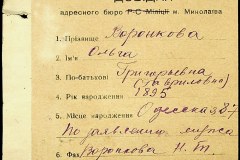 адресного бюро Р-С Міліції м. Миколаїва
1. Прізвище Воронкова
2. Ім'я Ольга
3. По-батькові Григорьевна
(Гавриловна)
4. Рік народження 1895
5. Місце народження Одесская, 87
По заявлению мужа
6. Фах Воронкова Н. Т.